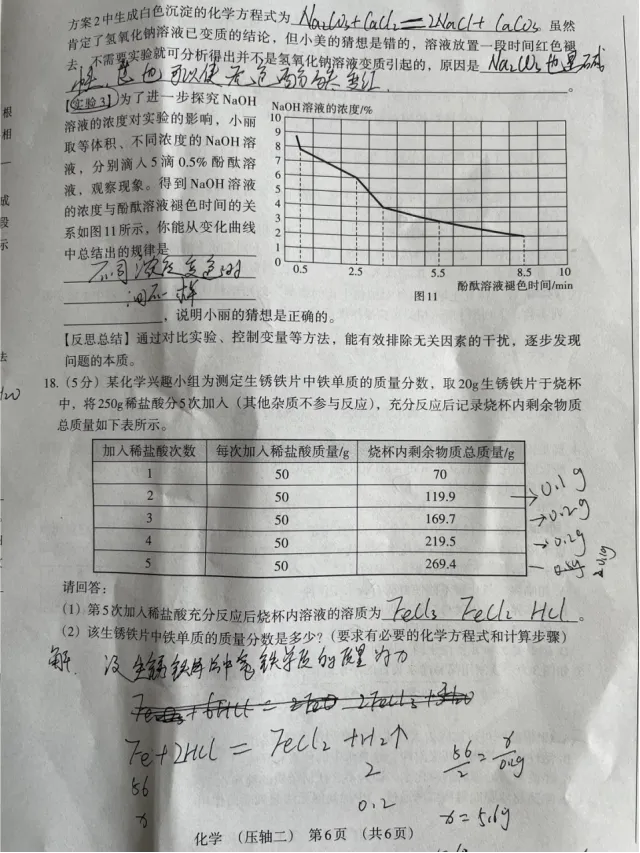 方案2中生成白色沉淀的化学方程式为 Na₂CO₃+CaCl₂=2NaCl+CaCO₃。虽然
肯定了氢氧化钠溶液已变质的结论,但小美的猜想是错的,溶液放置一段时间红色褪
去,不需要实验就可分析得出并不是氢氧化钠溶液变质引起的,原因是 Na₂CO₃也是碱
性,也可以使无色酚酞变红。
【实验3】为了进一步探究NaOH
溶液的浓度对实验的影响,小丽
取等体积、不同浓度的NaOH溶
液,分别滴入5滴0.5%酚酞溶
液,观察现象。得到NaOH溶液
的浓度与酚酞溶液褪色时间的关
系如图11所示,你能从变化曲线
中总结出的规律是
不同浓度变色时
间不一样
,说明小丽的猜想是正确的。
NaOH溶液的浓度/%
10
9
8
7
6
5
4
3
2
1
0
0.5 2.5 5.5 8.5 10
酚酞溶液褪色时间/min
图11
【反思总结】通过对比实验、控制变量等方法,能有效排除无关因素的干扰,逐步发现
问题的本质。
18.(5分)某化学兴趣小组为测定生锈铁片中铁单质的质量分数,取20g生锈铁片于烧杯
中,将250g稀盐酸分5次加入(其他杂质不参与反应),充分反应后记录烧杯内剩余物质
总质量如下表所示。
加入稀盐酸次数 每次加入稀盐酸质量/g 烧杯内剩余物质总质量/g
1 50 70
2 50 119.9 →0.1g
3 50 169.7 →0.2g
4 50 219.5 →0.2g
5 50 269.4 0.1g
请回答:
(1)第5次加入稀盐酸充分反应后烧杯内溶液的溶质为 FeCl₃ FeCl₂ HCl。
(2)该生锈铁片中铁单质的质量分数是多少?(要求有必要的化学方程式和计算步骤)
解 设生锈铁片中铁单质的质量为
Fe+2HCl=FeCl₂+H₂↑
56 2
x 0.2
56/2=x/0.2g
x=5.6g
化学 (压轴二) 第6页 (共6页)
根
相
成
段
示
法